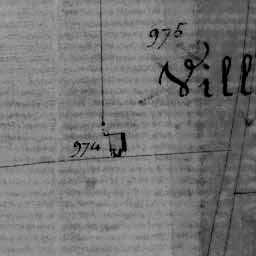 975
Vill
974